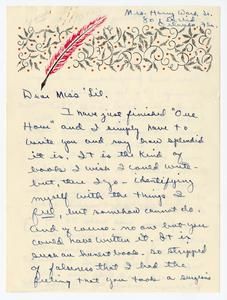 Mrs. Harry Ward, Sr.
Orlando, Fla.
Dear Miss 'Lil.
I have just finished "One
Hour" and I simply have to
write you and say how splendid
it is. It is the kind of
book I wish I could write -
but, there I go - identifying
myself with the things I
feel, but somehow cannot do.
And of course - no one but you
could have written it. It is
such an honest book. So stripped
of falseness that I had the
feeling that you took a surgeon's